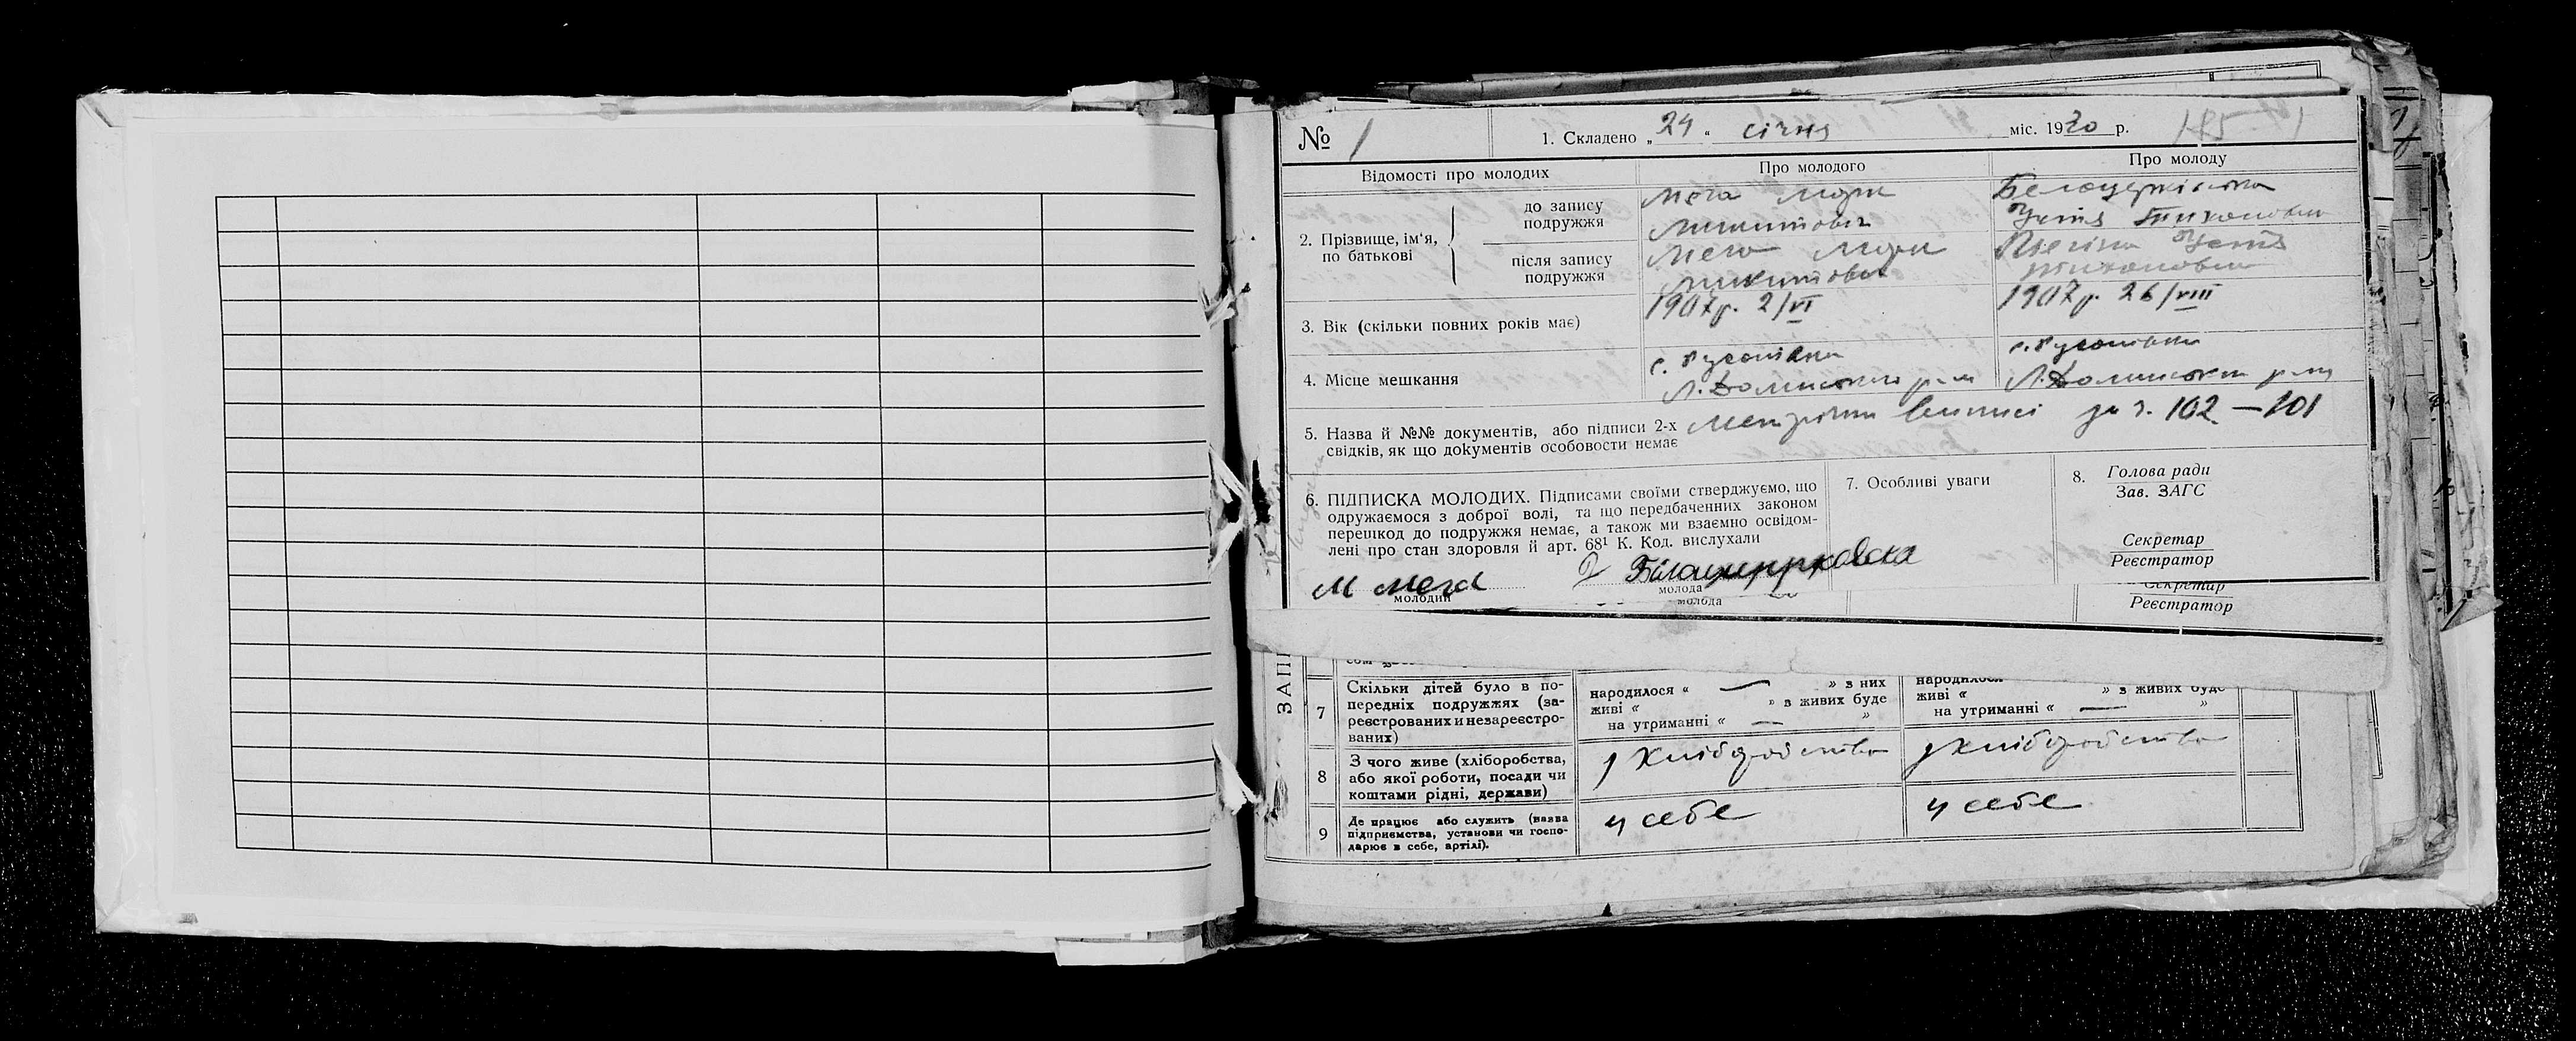 № 1
1. Складено „24“ січня міс. 1930 р.
Відомості про молодих
Про молодого
Про молоду
2. Прізвище, ім‘я, по батькові
до запису подружжя
Мега Марк
Микитович
Білоцерківська
Устя Тихоновна
після запису подружжя
Мега Марк
Микитович
Устя
Тихоновна
3. Вік (скільки повних років має)
1907 р. 2/VI
1907 р. 26/VIII
4. Місце мешкання
с.
Л. Долинського р-ну
с.
Л. Долинського р-ну
5. Назва й №№ документів, або підписи 2-х
свідків, як що документів особовости немає
Метричні виписі за ч. 102 — 101
6. ПІДПИСКА МОЛОДИХ. Підписами своїми стверджуємо, що
одружаємося з доброї волі, та що передбаченних законом
перешкод до подружжя немає, а також ми взаємно освідом-
лені про стан здоровля й арт. 68¹ К. Код. вислухали
М Мега
молодий
Білоцеррковска
молода
7. Особливі уваги
8. Голова ради
Зав. ЗАГС
Секретар
Реєстратор
молода
Секретар
Реєстратор
ЗАП
7
Скільки дітей було в по-
передніх подружжях (за-
реєстрованих и незареєстро-
ваних)
народилося « — » з них
живі « » з живих буде
на утриманні « — »
живі « » з живих буде
на утриманні « — »
8
З чого живе (хліборобства,
або якої роботи, посади чи
коштами рідні, держави)
хліборобство
хліборобство
9
Де працює або служить (назва
підприємства, установи чи госпо-
дарює в себе, артілі).
у себе
у себе